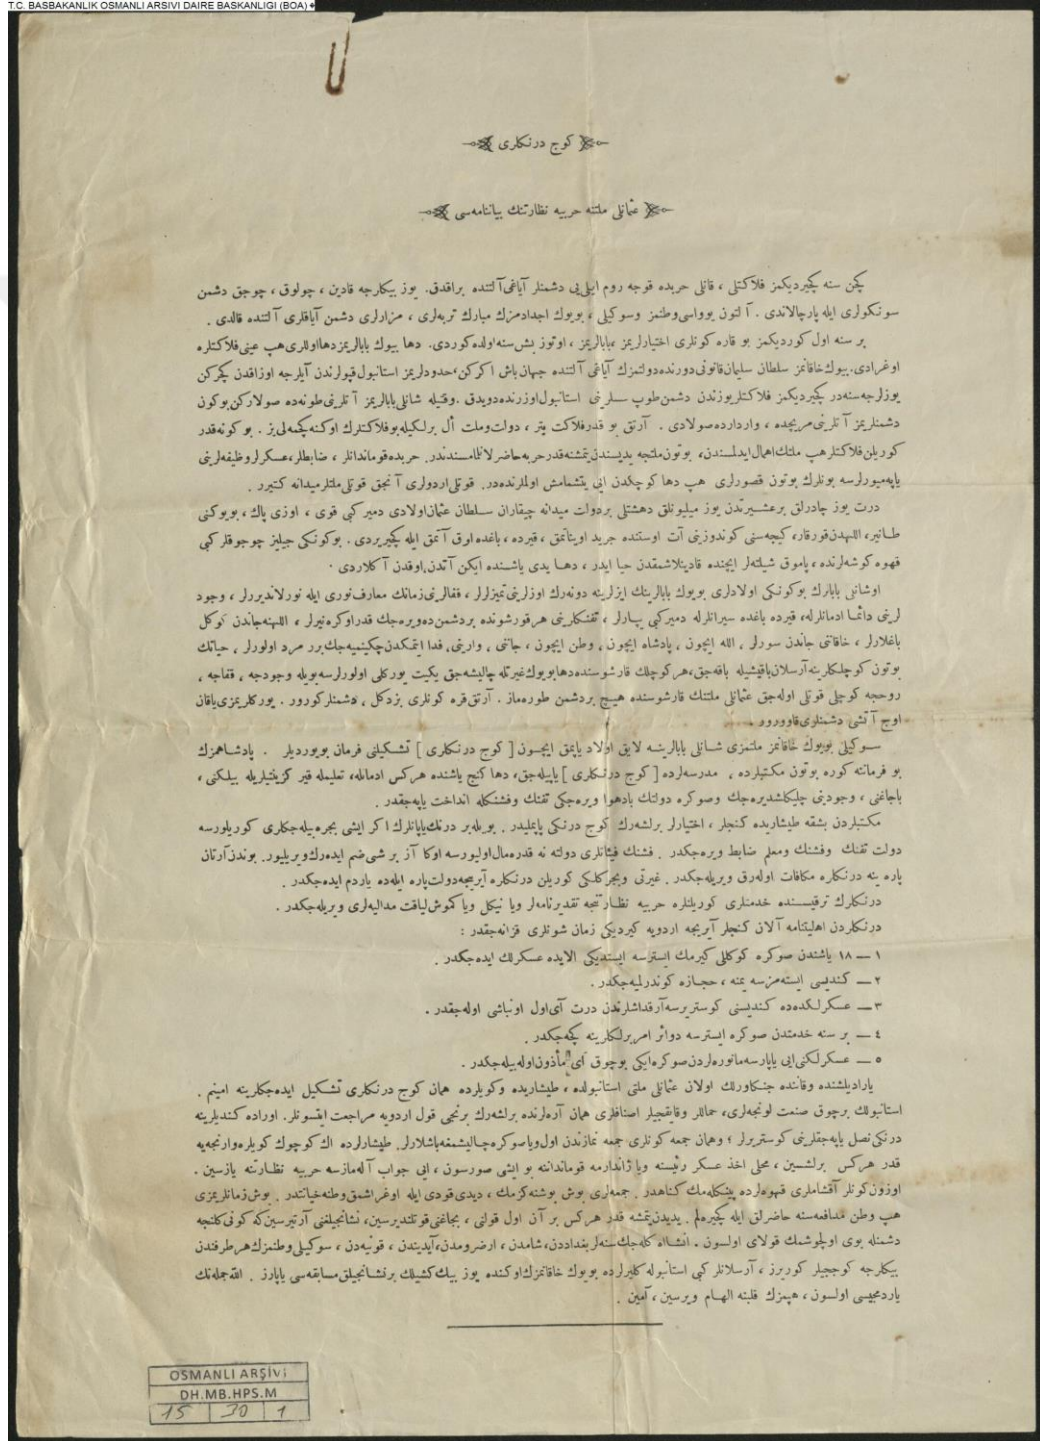 T.C. BASBAKANLIK OSMANLI ARSIVI DAIRE BASKANLIGI (BOA) +
كوج درنكلری
عثمانلی ملتنه حربیه نظارتنك بیاننامه‌سی
كچن سنه كچیردیكمز فلاكتلی ، قانلی حربده قوجه روم ایلی‌یی دشمنلر آیاغی آلتنده براقدق. یوز بیكلرجه قادین ، چولوق ، چوجق دشمن
سونكولری ایله پارچالاندی . آلتون یوواسی وطنمز وسوكیلی ، بویوك اجدادمزك مبارك تربه‌لری ، مزارلری دشمن آیاقلری آلتنده قالدی .
بر سنه اول كوردیكمز بو قاره كونلری اختیارلریمز ، بابالریمز ، اوتوز بش سنه اولده كوردی. دها بیوك بابالریمز دها اوللری هپ عینی فلاكتلره
اوغرادی. بیوك خاقانمز سلطان سلیمان قانونی دورنده دولتمزك آیاغی آلتنده جهان باش اكركن، حدودلریمز استانبول قپولرندن آیلرجه اوزاقدن كچركن
یوزلرجه سنه‌در كچیردیكمز فلاكتلر یوزندن دشمن طوپ سسلرینی استانبول اوزرنده دویدق . وقتیله شانلی بابالریمز آتلرینی طونه‌ده صولاركن بوكون
دشمنلریمز آتلرینی مریچده ، واردارده صولادی . آرتق بو قدر فلاكت یتر ، دولت وملت أل برلكیله بو فلاكتلرك اوكنه كچمه‌لی‌یز . بو كونه قدر
كوریلن فلاكتلر هپ ملتك اهمال ایدلمسندن، بوتون ملتجه یدیسندن یتمشنه قدر حربه حاضرلانمامسندندر. حربده قوماندانلر ، ضابطلر، عسكرلر وظیفه‌لرینی
یاپه‌میورلرسه بونلرك بوتون قصورلری هپ دها كوچكدن ایی یتشمامش اولملرنده‌در. قوتلی اردولری آنجق قوتلی ملتلر میدانه كتیرر .
درت یوز چادرلق بر عشیرتدن یوز میلیونلق دهشتلی بر دولت میدانه چیقاران سلطان عثمان اولادی دمیر كبی قوی ، اوزی پاك ، بویوكنی
طانیر، اللهدن قورقار، كیجه‌سنی كوندوزینی آت اوستنده جرید اویناتمق ، قیرده ، باغده اوق آتمق ایله كچیریردی . بوكونكی جیلیز چوجوقلر كبی
قهوه كوشه‌لرنده ، پاموق شیلته‌لر ایچنده قادینلاشمقدن حیا ایدر ، دها یدی یاشنده ایكن آتدن، اوقدن آكلاردی .
اوشانلی بابالرك بوكونكی اولادلری بویوك بابالرینك ایزلرینه دونه‌رك اوزلرینی تمیزلرلر ، قفالرینی زمانك معارف نوری ایله نورلاندیررلر ، وجود
لرینی دائما ادمانلرله، قیرده باغده سیرانلرله دمیر كبی یپارلر ، تفنكلرینی هر قورشونده بر دشمن ده‌ویره‌جك قدر اوكره‌نیرلر ، اللهه جاندن كوكل
باغلارلر ، خاقانی جاندن سورلر ، الله ایچون ، پادشاه ایچون ، وطن ایچون ، جاننی ، وارینی، فدا ایتمكدن چكینمیه‌جك برر مرد اولورلر ، حیاتك
بوتون كوچلكلرینه آرسلان باقیشیله باقه‌جق، هر كوچلك قارشوسنده دها بویوك غیرتله چالیشه‌جق یكیت یوركلی اولورلرسه بویله وجودجه ، قفاجه ،
روحجه كوچلی قوتلی اوله‌جق عثمانلی ملتنك قارشوسنده هیچ بر دشمن طوره‌ماز . آرتق قره كونلری بز دكل ، دشمنلر كورور . یوركلریمزی یاقان
اوج آتشی دشمنلری قاوورور .
سوكیلی بویوك خاقانمز ملتمزی شانلی بابالرینه لایق اولاد یاپمق ایچون [ كوج درنكلری ] تشكیلنی فرمان بویوردیلر . پادشاهمزك
بو فرماننه كوره بوتون مكتبلرده ، مدرسه‌لرده [ كوج درنكلری ] یاپیله‌جق، دها كنج یاشنده هركس ادمانله، تعلیمله قیر كزینتیلریله بیلكنی ،
باجاغنی ، وجودینی چلیكلشدیره‌جك وصوكره دولتك بادهوا ویره‌جكی تفنك وفشنكله انداخت یاپه‌جقدر .
مكتبلردن بشقه طیشاریده كنجلر ، اختیارلر برلشه‌رك كوج درنكی یاپملیدر. بویله بر درنك یاپانلرك اكر ایشی بجره‌بیله‌جكلری كوریلورسه
دولت تفنك وفشنك ومعلم ضابط ویره‌جكدر . فشنك فیئانلری دولته نه قدره مال اولیورسه اوكا آز بر شی ضم ایده‌رك ویریلیور. بوندن آرتان
پاره ینه درنكلره مكافات اوله‌رق ویریله‌جكدر. غیرتی وبجركلكی كوریلن درنكلره آیریجه دولت پاره ایله‌ده یاردم ایده‌جكدر .
درنكلرك ترقیسنده خدمتلری كوریلنلره حربیه نظارتنجه تقدیرنامه‌لر ویا نیكل ویا كموش لیاقت مدالیه‌لری ویریله‌جكدر .
درنكلردن اهلیتنامه آلان كنجلر آیریجه اردویه كیردیكی زمان شونلری قزانه‌جقدر :
١ — ١٨ یاشندن صوكره كوكللی كیرمك ایسترسه ایستدیكی الایده عسكرلك ایده‌جكدر .
٢ — كندیسی ایسته‌مزسه یمنه ، حجازه كوندرلمیه‌جكدر .
٣ — عسكرلكده‌ده كندیسنی كوستریرسه آرقداشلرندن درت آی اول اونباشی اوله‌جقدر .
٤ — بر سنه خدمتدن صوكره ایسترسه دوائر امربرلكلرینه كچه‌جكدر .
٥ — عسكرلكنی ایی یاپارسه مانوره‌لردن صوكره ایكی بوچوق آی مأذون اوله‌بیله‌جكدر .
یارادیلشنده وقاننده جنكاورلك اولان عثمانلی ملتی استانبولده ، طیشاریده وكویلرده همان كوج درنكلری تشكیل ایده‌جكلرینه امینم .
استانبولك برچوق صنعت لونجه‌لری، حماللر وقایقجیلر اصنافلری همان آره‌لرنده برلشه‌رك برنجی قول اردویه مراجعت ایتسونلر. اوراده كندیلرینه
درنكی نصل یاپه‌جقلرینی كوستریرلر ؛ وهمان جمعه كونلری جمعه نمازندن اول ویا صوكره چالیشمغه باشلارلر. طیشارلرده اك كوچوك كویلره وارنجه‌یه
قدر هركس برلشسین ، محلی اخذ عسكر رئیسنه ویا ژاندارمه قومانداننه بو ایشی صورسون ، ایی جواب آله‌مازسه حربیه نظارتنه یازسین .
اوزون كونلر آقشاملری قهوه‌لرده پینكله‌مك كناهدر. جمعه‌لری بوش بوشنه كزمك ، دیدی قودی ایله اوغراشمق وطنه خیانتدر. بوش زمانلریمزی
هپ وطن مدافعه‌سنه حاضرلق ایله كچیره‌لم . یدیدن یتمشه قدر هركس بر آن اول قولنی ، بجاغنی قوتلندیرسین، نشانجیلغنی آرتیرسین كه كونی كلنجه
دشمنله بوی اولچوشمك قولای اولسون . انشاالله كله‌جك سنه‌لر بغداددن، شامدن ، ارضرومدن، آیدیندن ، قونیه‌دن ، سوكیلی وطنمزك هر طرفندن
بیكلرجه كوججیلر كوریرز ، آرسلانلر كبی استانبوله كلیرلر ده بویوك خاقانمزك اوكنده یوز بیك كشیلك بر نشانجیلق مسابقه‌سی یاپارز . الله جمله‌نك
یاردمجیسی اولسون ، هپمزك قلبنه الهام ویرسین ، آمین .
OSMANLI ARŞİVİ
DH.MB.HPS.M
15 30 1